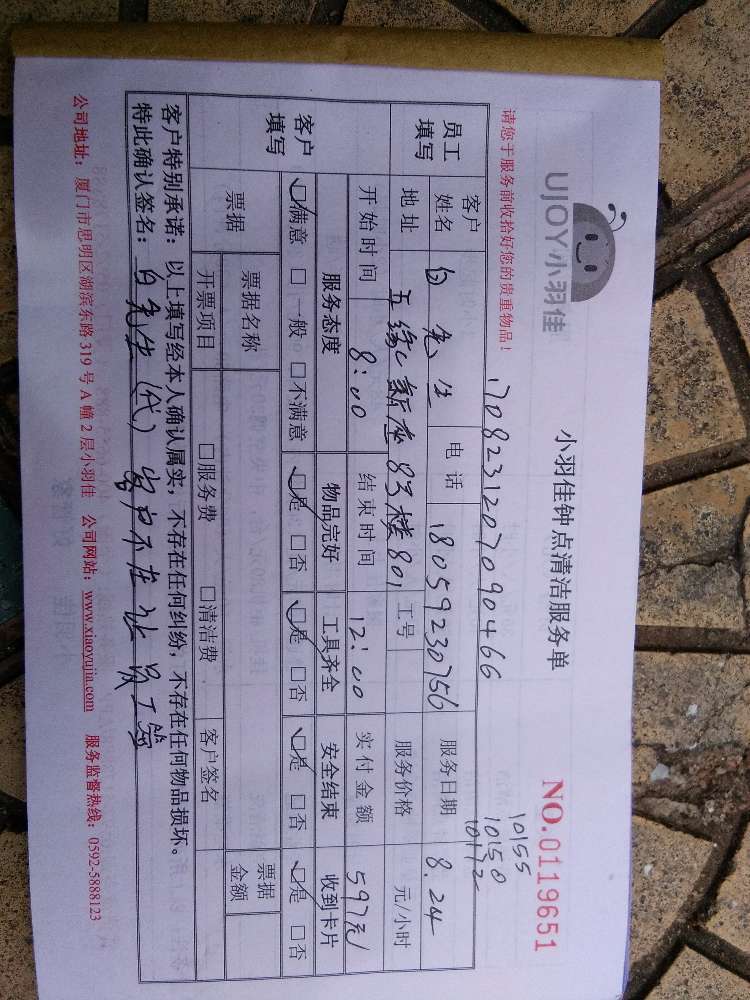 UJOY小羽佳
小羽佳钟点清洁服务单
NO.0119651
10155
10150
10112
请您于服务前收拾好您的贵重物品！
1708231207090466
员工填写
客户姓名 白先生 电话 18059230756 服务日期 8.24
地址 五缘新座83楼801 工号 服务价格 元/小时
开始时间 8:00 结束时间 12:00 实付金额 597元
客户填写
服务态度 物品完好 工具齐全 安全结束 收到卡片
☑满意 □一般 □不满意 ☑是 □否 ☑是 □否 ☑是 □否 ☑是 □否
票据 票据名称 客户签名 票据金额
开票项目 □服务费 □清洁费
客户特别承诺：以上填写经本人确认属实，不存在任何纠纷，不存在任何物品损坏。
特此确认签名：白先生(代) 客户不在让员工签
公司地址：厦门市思明区湖滨东路319号A幢2层小羽佳 公司网站：www.xiaoyujia.com 服务监督热线：0592-5888123